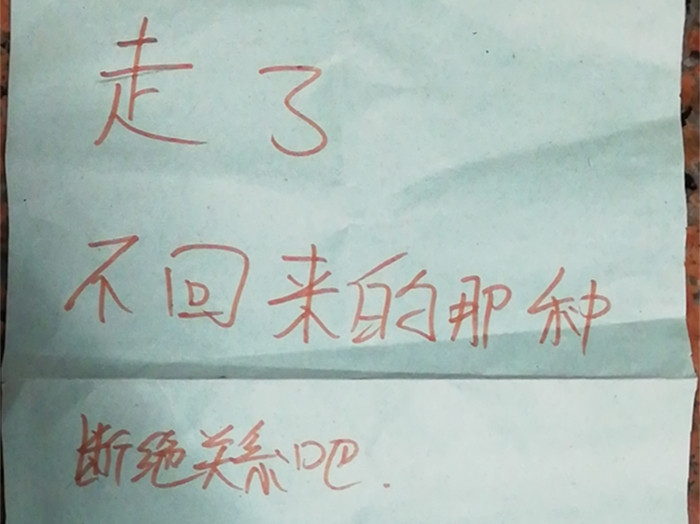 走了
不回来的那种
断绝关系吧.